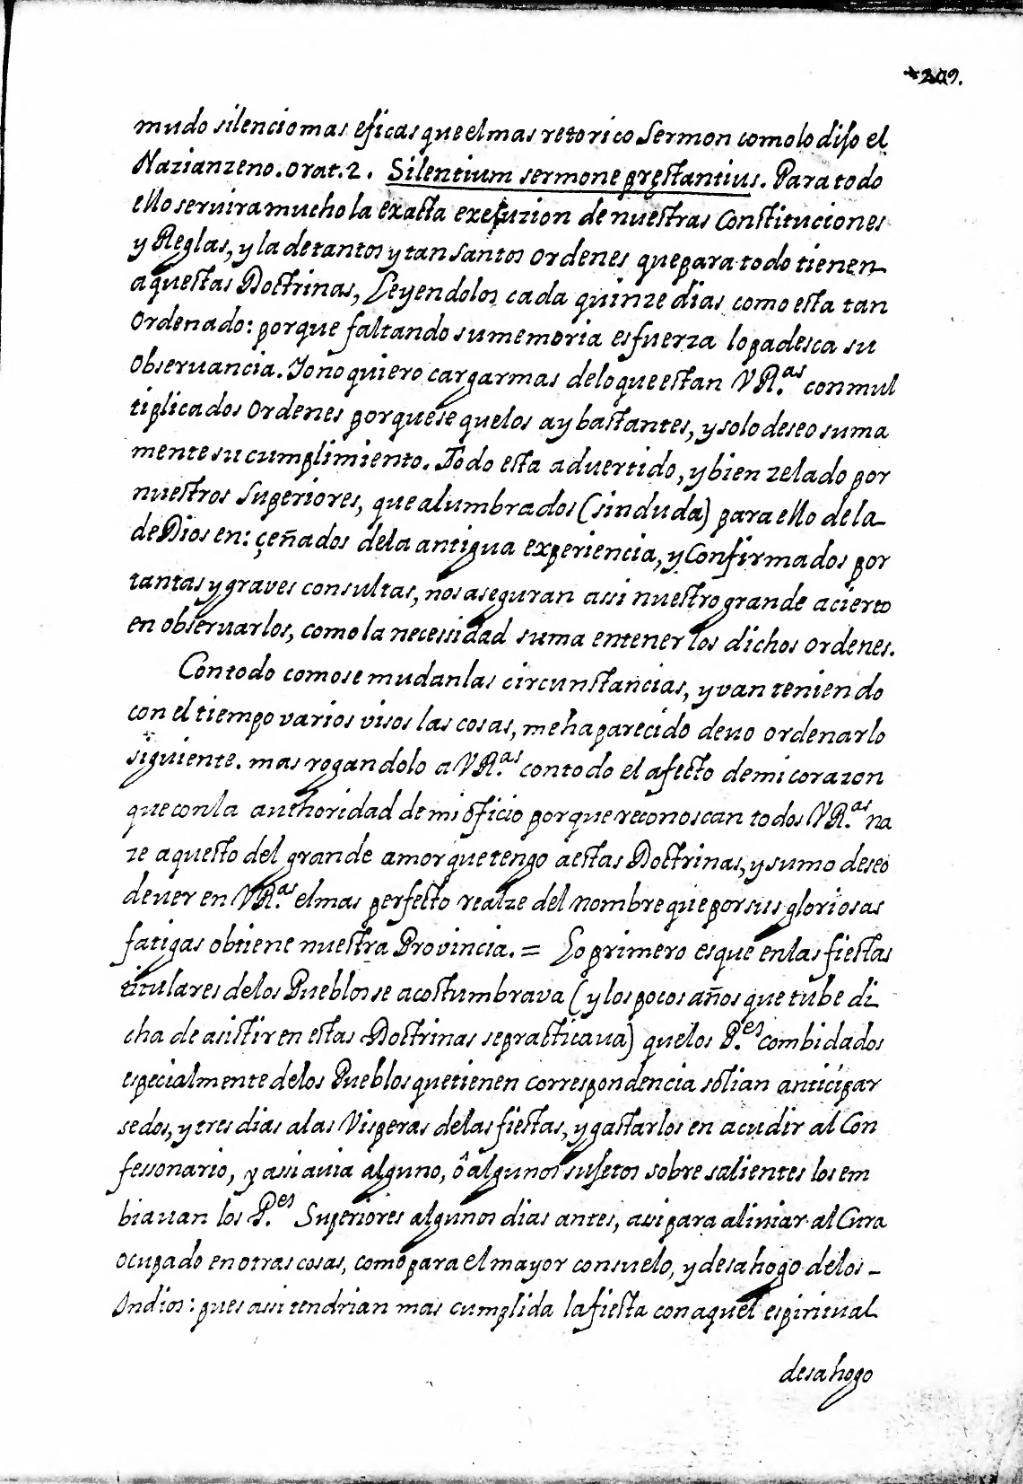 209.
mudo silencio mas eficas que el mas retorico Sermon como lo dijo el
Nazianzeno. orat. 2. Silentium sermone pręstantius. Para todo
ello seruira mucho la exacta execuzion de nuestras Constituciones
y Reglas, y la de tantos y tan santos ordenes que para todo tienen
aquestas Doctrinas, Leyendolos cada quinze dias como esta tan
Ordenado: porque faltando su memoria esfuerza lo padesca su
Obseruancia. Yo no quiero cargar mas de lo que estan VR.as con mul
tiplicados Ordenes porque se que los ay bastantes, y solo deseo suma
mente su cumplimiento. Todo esta aduertido, y bien zelado por
nuestros Superiores, que alumbrados (sin duda) para ello de la
de Dios en: çeñados de la antigua experiencia, y Confirmados por
tantas y graves consultas, nos aseguran assi nuestro grande acierto
en obseruarlos, como la necessidad suma en tener los dichos ordenes.
Con todo como se mudan las circunstancias, y van teniendo
con el tiempo varios visos las cosas, me ha parecido deuo ordenar lo
siguiente. mas rogandolo a VR.as con todo el afecto de mi corazon
que con la authoridad de mi oficio porque reconoscan todos VR.as na
ze aquesto del grande amor que tengo a estas Doctrinas, y sumo deseo
de uer en VR.as el mas perfecto realze del nombre que por sus gloriosas
fatigas obtiene nuestra Provincia. = Lo primero es que en las fiestas
titulares de los Pueblos se acostumbrava (y los pocos años que tube di
cha de asistir en estas Doctrinas se practicaua) que los P.es combidados
especialmente de los Pueblos que tienen correspondencia solian anticipar
se dos, y tres dias a las Visperas de las fiestas, y gastarlos en acudir al Con
fessonario, y assi auia alguno, ô algunos sujetos sobresalientes los em
biauan los P.es Superiores algunos dias antes, asi para aliuiar al Cura
ocupado en otras cosas, como para el mayor consuelo, y desahogo de los
Indios: pues assi tendrian mas cumplida la fiesta con aquel espiritual
desahogo